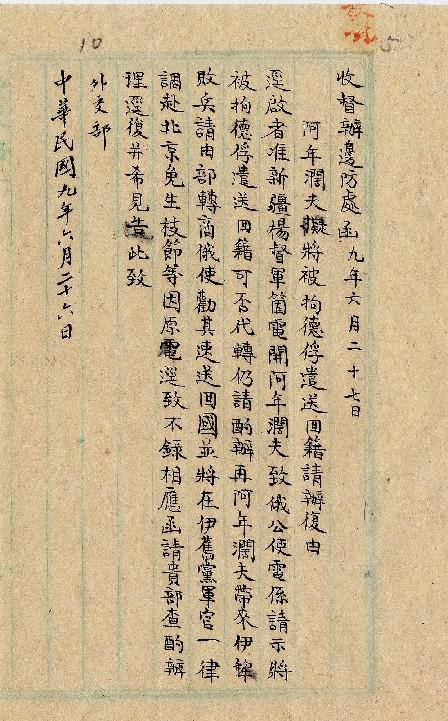 10
5
收督辦邊防處函九年六月二十七日
阿年濶夫擬將被拘德俘遣送回籍請辦復由
逕啟者准新疆楊督軍箇電開阿年濶夫致俄公使電係請示將
被拘德俘遣送回籍可否代轉仍請酌辦再阿年濶夫帶來伊犂
敗兵請由部轉商俄使勸其速送回國並將在伊舊黨軍官一律
調赴北京免生枝節等因原電逕致不錄相應函請貴部查酌辦
理逕復并希見告此致
外交部
中華民國九年六月二十六日